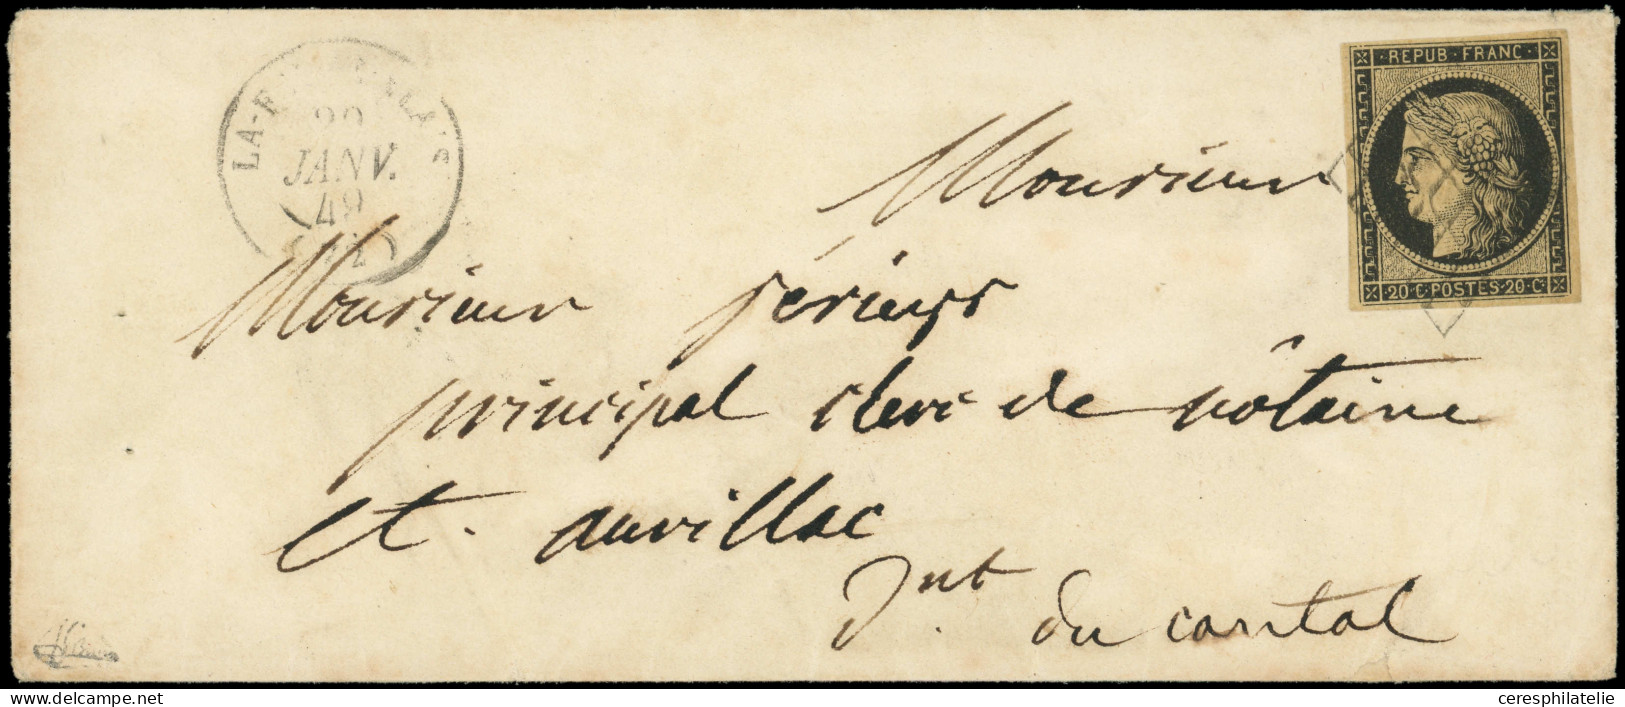 JANV.
49
REPUB · FRANC ·
· 20 · C · POSTES · 20 · C ·
Monsieur
Monsieur Périeyr
principal clerc de nôtaire
et. auvillac
Dnt. du cantal
ceresphilatelie